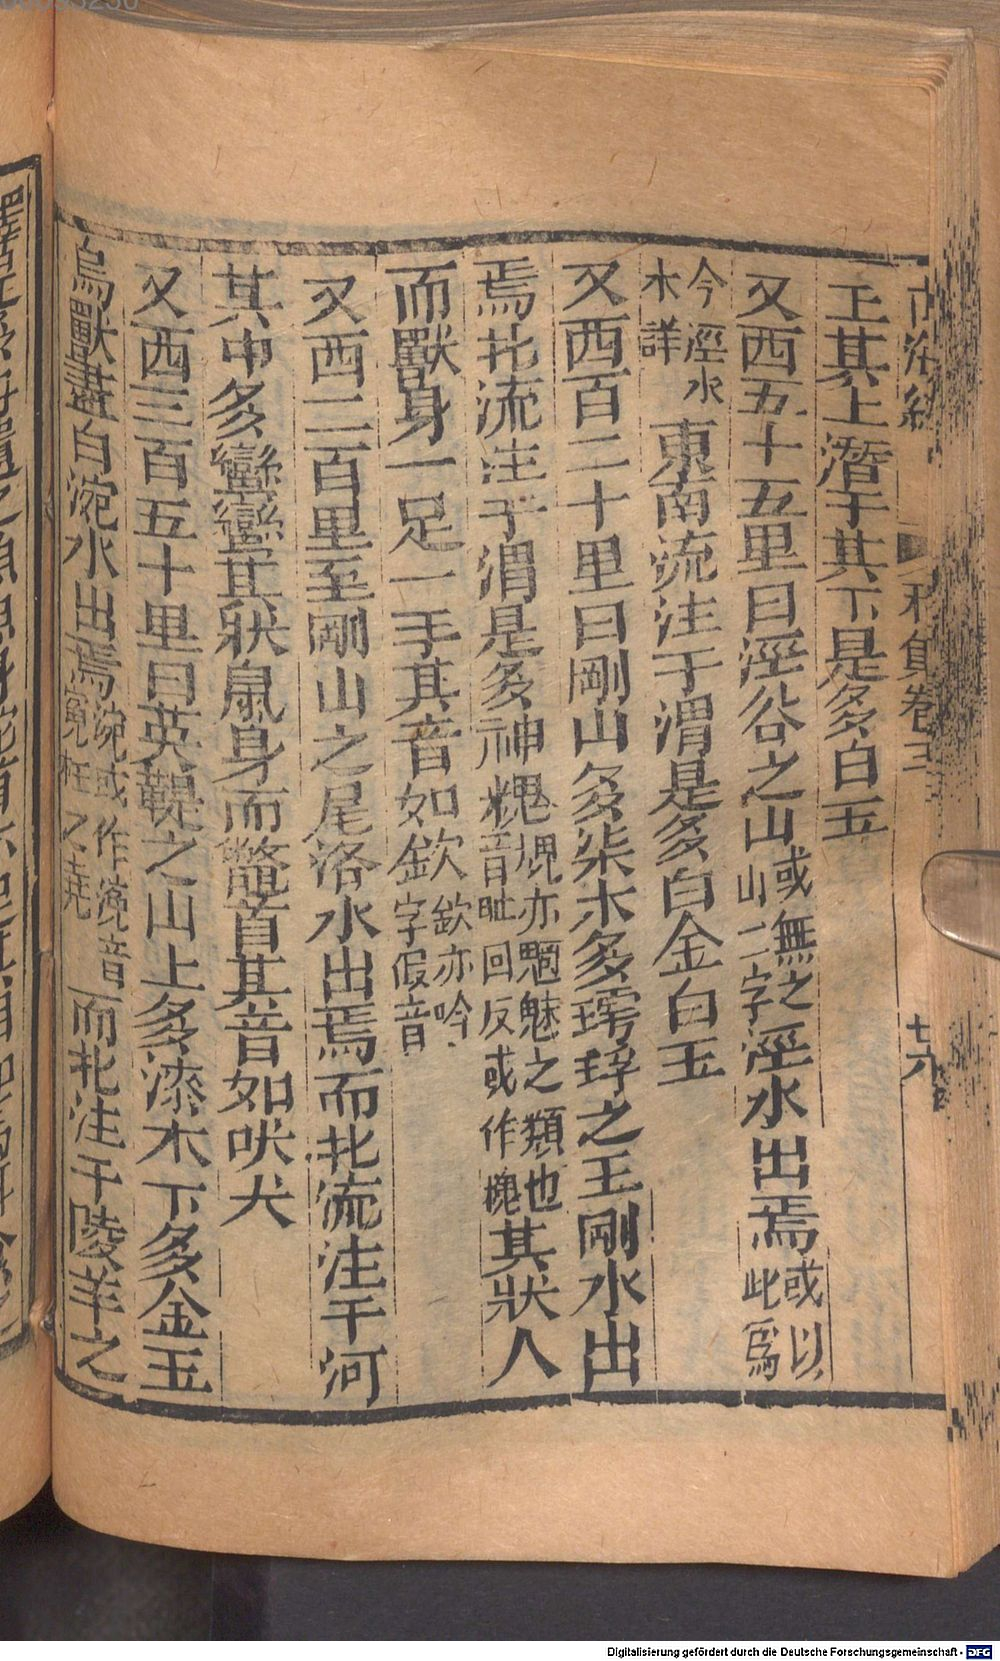 山海經
利集卷三
十八
玉其上潛于其下是多白玉
又西五十五里曰涇谷之山或無之山二字涇水出焉或以此爲
今涇水未詳東南流注于渭是多白金白玉
又西百二十里曰剛山多柒木多㻬琈之玉剛水出
焉北流注于渭是多神䰠䰠亦魑魅之類也音恥回反或作𩳁其狀人
面獸身一足一手其音如欽欽亦吟字假音
又西二百里至剛山之尾洛水出焉而北流注于河
其中多蠻蠻其狀鼠身而鼈首其音如吠犬
又西三百五十里曰英鞮之山上多漆木下多金玉
鳥獸盡白涴水出焉涴或作浼音冤枉之冤而北注于陵羊之
00093230
Digitalisierung gefördert durch die Deutsche Forschungsgemeinschaft - DFG